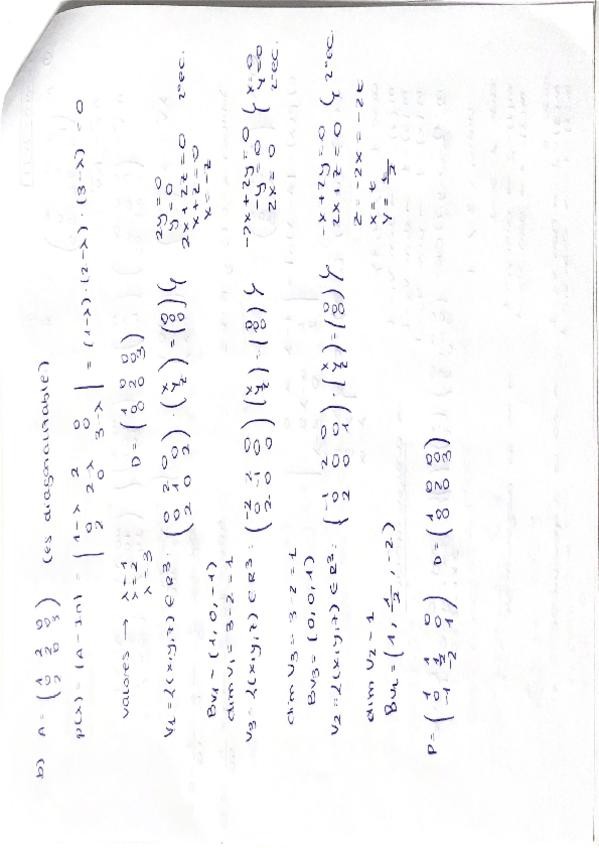 b) A = (1 2 0 / 0 2 0 / 2 0 3) (es diagonalizable)
p(λ) = |A-λIn| = |1-λ 2 0 / 0 2-λ 0 / 2 0 3-λ| = (1-λ)·(2-λ)·(3-λ) = 0
valores → λ=1
λ=2
λ=3
D = (1 0 0 / 0 2 0 / 0 0 3)
V1 = {(x,y,z) ∈ R3 : (0 2 0 / 0 1 0 / 2 0 2) · (x / y / z) = (0 / 0 / 0) }
2y = 0
y = 0
2x + 2z = 0 2 ec.
x + z = 0
x = -z
Bv1 = (1, 0, -1)
dim V1 = 3-2 = 1
V3 = {(x,y,z) ∈ R3 : (-2 2 0 / 0 -1 0 / 2 0 0) (x / y / z) · (0 / 0 / 0) }
-2x + 2y = 0 } x=0
-y = 0 } y=0
2x = 0 2 ec.
dim V3 = 3-2 = 1
Bv3 = (0, 0, 1)
V2 = {(x,y,z) ∈ R3 : (-1 2 0 / 0 0 0 / 2 0 1) · (x / y / z) = (0 / 0 / 0) }
-x + 2y = 0 }
2x + z = 0 } 2 ec.
z = -2x = -2t
x = t
y = t/2
dim V2 = 1
Bv2 = (1, 1/2, -2)
P = (1 1 0 / 0 1/2 0 / -1 -2 1) D = (1 0 0 / 0 2 0 / 0 0 3)